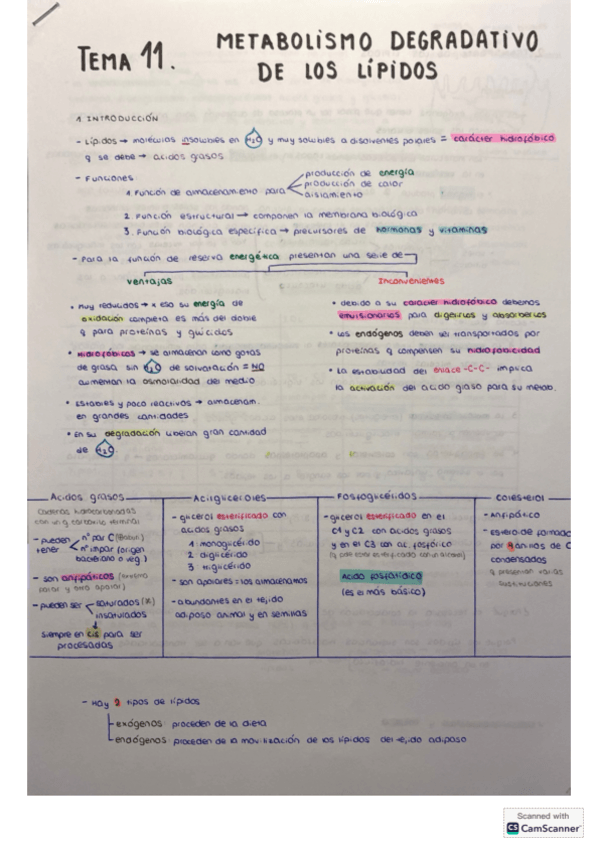 TEMA 11. METABOLISMO DEGRADATIVO
DE LOS LÍPIDOS
1 INTRODUCCIÓN
- Lípidos → moléculas insolubles en H₂O y muy solubles a disolventes polares = carácter hidrofóbico
q se debe → acidos grasos
- Funciones:
1 Función de almacenamiento para
producción de energía
producción de calor
aislamiento
2 Función estructural → componen la membrana biológica
3. Función biológica específica → precursores de hormonas y vitaminas
- Para la función de reserva energética presentan una serie de
ventajas
• Muy reducidos → x eso su energía de
oxidación completa es más del doble
q para proteínas y glúcidos
• Hidrofóbicos → se almacenan como gotas
de grasa sin H₂O de solvatación = NO
aumentan la osmolaridad del medio
• Estables y poco reactivos → almacenam.
en grandes cantidades
• en su degradación liberan gran cantidad
de H₂O
Inconvenientes
• debido a su carácter hidrofóbico debemos
emulsionarlos para digerirlos y absorberlos
• Los endógenos deben ser transportados por
proteínas q compensen su hidrofobicidad
• La estabilidad del enlace -C-C- implica
la activación del acido graso para su metab.
Acidos grasos
cadenas hidrocarbonadas
con un g carboxilo terminal
- pueden tener
nº par C
nº impar (origen
bacteriano o veg.)
- son anfipáticos (extremo
polar y otro apolar)
- pueden ser
saturados
insaturados
siempre en cis para ser
procesadas
Acilgliceroles
- glicerol esterificado con
acidos grasos
1 monoglicérido
2 diglicérido
3 triglicérido
- son apolares = los almacenamos
- abundantes en el tejido
adiposo animal y en semillas
Fosfoglicéridos
- glicerol esterificado en el
C1 y C2 con acidos grasos
y en el C3 con ac. fosfórico
(q puede estar esterificado con un alcohol)
Acido fosfatídico
(es el más básico)
Colesterol
- Anfipático
- esteroide formado
por 4 anillos de C
condensados
q presentan varias
sustituciones
- Hay 2 tipos de lípidos
exógenos: proceden de la dieta
endógenos: proceden de la movilización de los lípidos del tejido adiposo
Scanned with
CS CamScanner